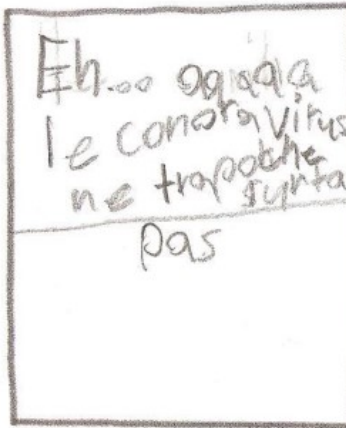 Eh...
le conora virus
ne trapoche surta
pas